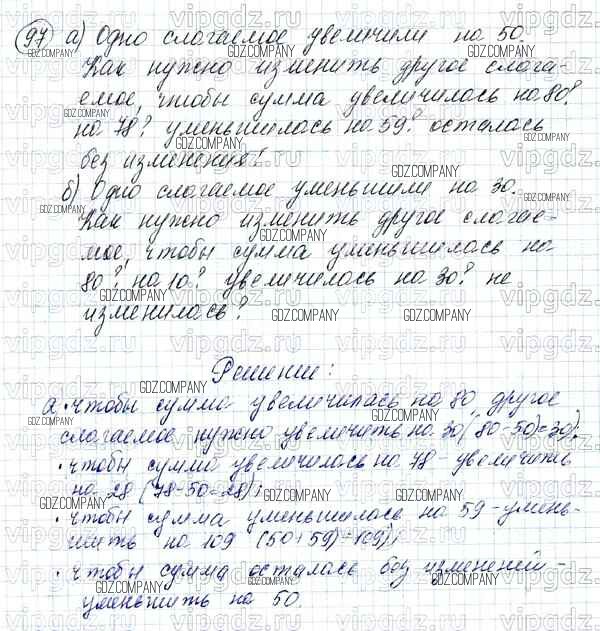 97 а) Одно слагаемое увеличили на 50.
Как нужно изменить другое слага-
емое, чтобы сумма увеличилась на 80?
на 78? уменьшилась на 59? осталась
без изменения?
б) Одно слагаемое уменьшили на 30.
Как нужно изменить другое слагае-
мое, чтобы сумма уменьшилась на
80? на 10? увеличилась на 30? не
изменилась?
Решение:
а. • чтобы сумма увеличилась на 80 другое
слагаемое нужно увеличить на 30 (80-50=30);
• чтобы сумма увеличилась на 78 - увеличить
на 28 (78-50=28);
• чтобы сумма уменьшилась на 59 - умень-
шить на 109 (50+59=109);
• чтобы сумма осталась без изменений -
уменьшить на 50.